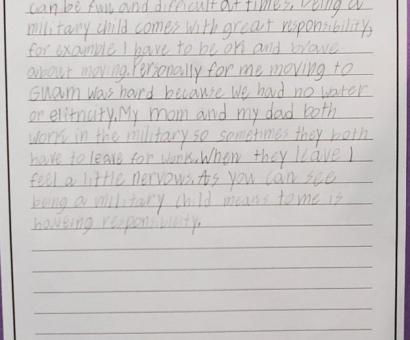 can be fun and difficult at times. Being a
military child comes with great responsibility,
for example I have to be ok and brave
about moving. Personally for me moving to
Guam was hard because we had no water
or elitncity. My mom and my dad both
work in the military so sometimes they both
have to leave for work. When they leave I
feel a little nervous. As you can see
being a military child means to me is
having responsibility.